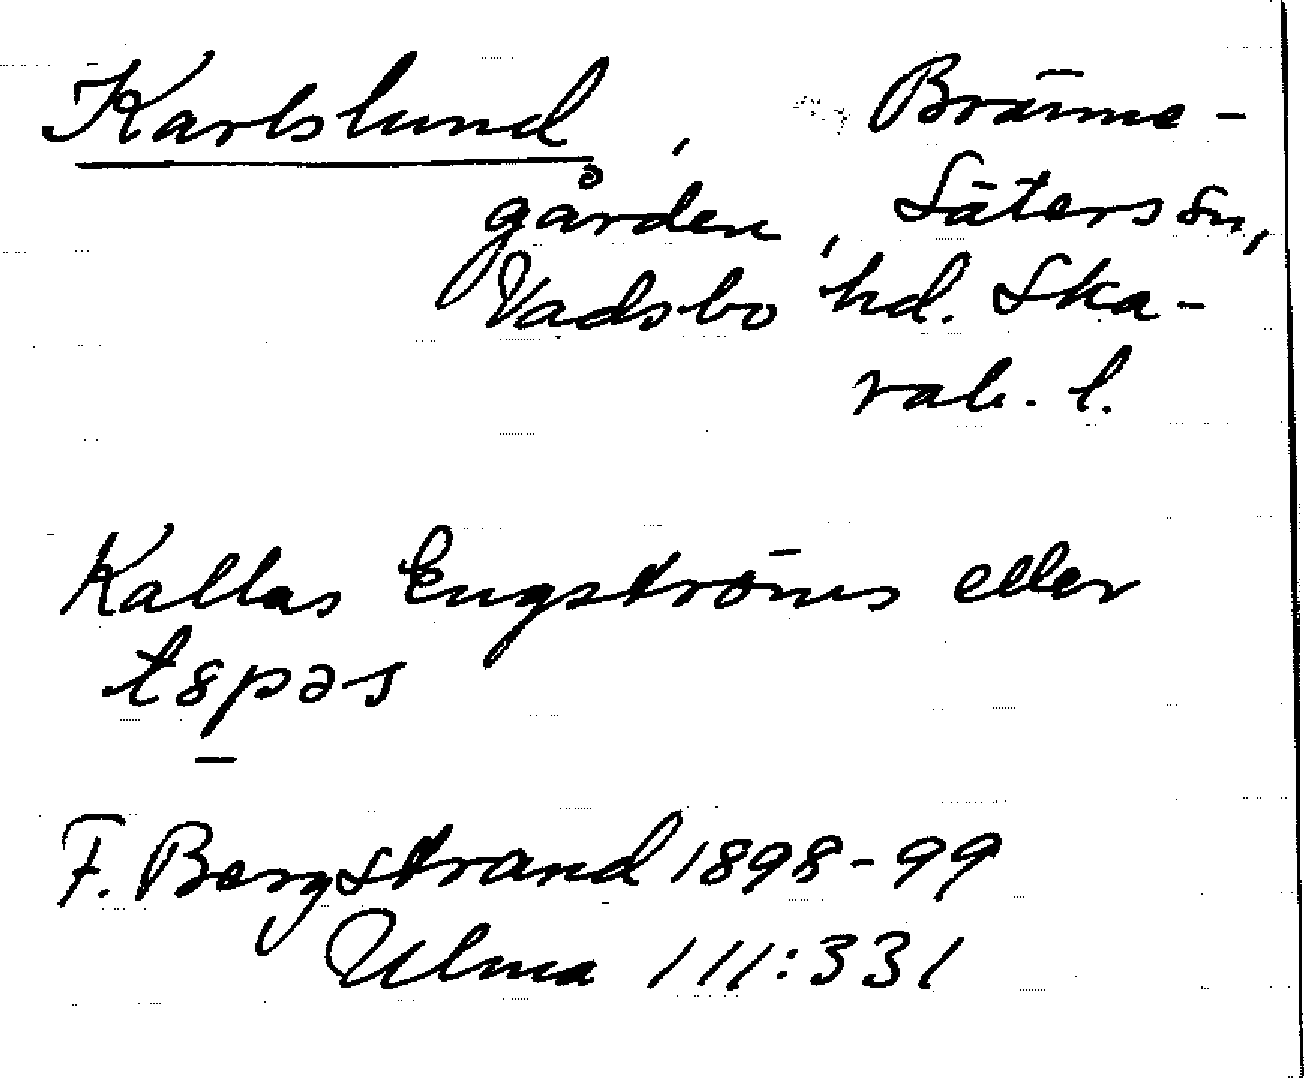 Karlslund, Bränne-
gården, Säters sn,
Vadsbo hd. Ska-
rab. l.
Kallas Engströms eller
F. Bergstrand 1898-99
Ulma 111:331